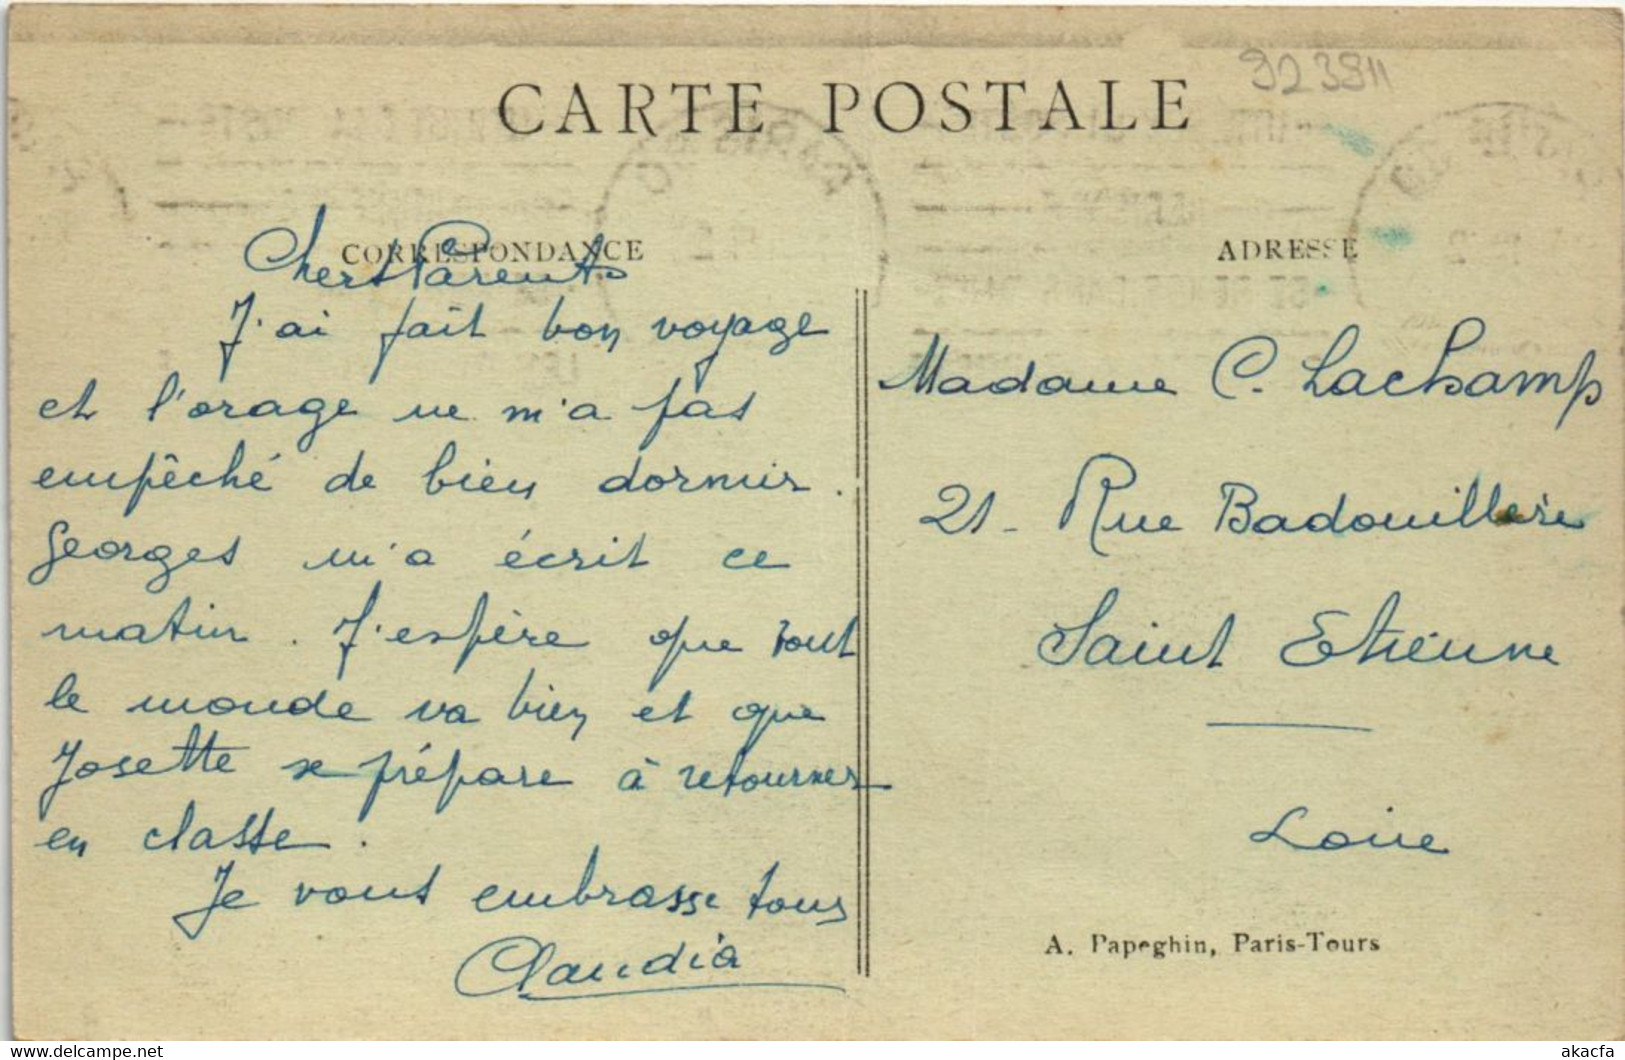 923811
CARTE POSTALE
CORRESPONDANCE
Chers Parents
J'ai fait bon voyage
et l'orage ne m'a pas
empêché de bien dormir.
Georges m'a écrit ce
matin. J'espère que tout
le monde va bien et que
Josette se prépare à retourner
en classe.
Je vous embrasse tous
Claudia
ADRESSE
Madame C. Lachamp
21 - Rue Badouillère
Saint Etienne
Loire
A. Papeghin, Paris-Tours
www.delcampe.net
akacfa